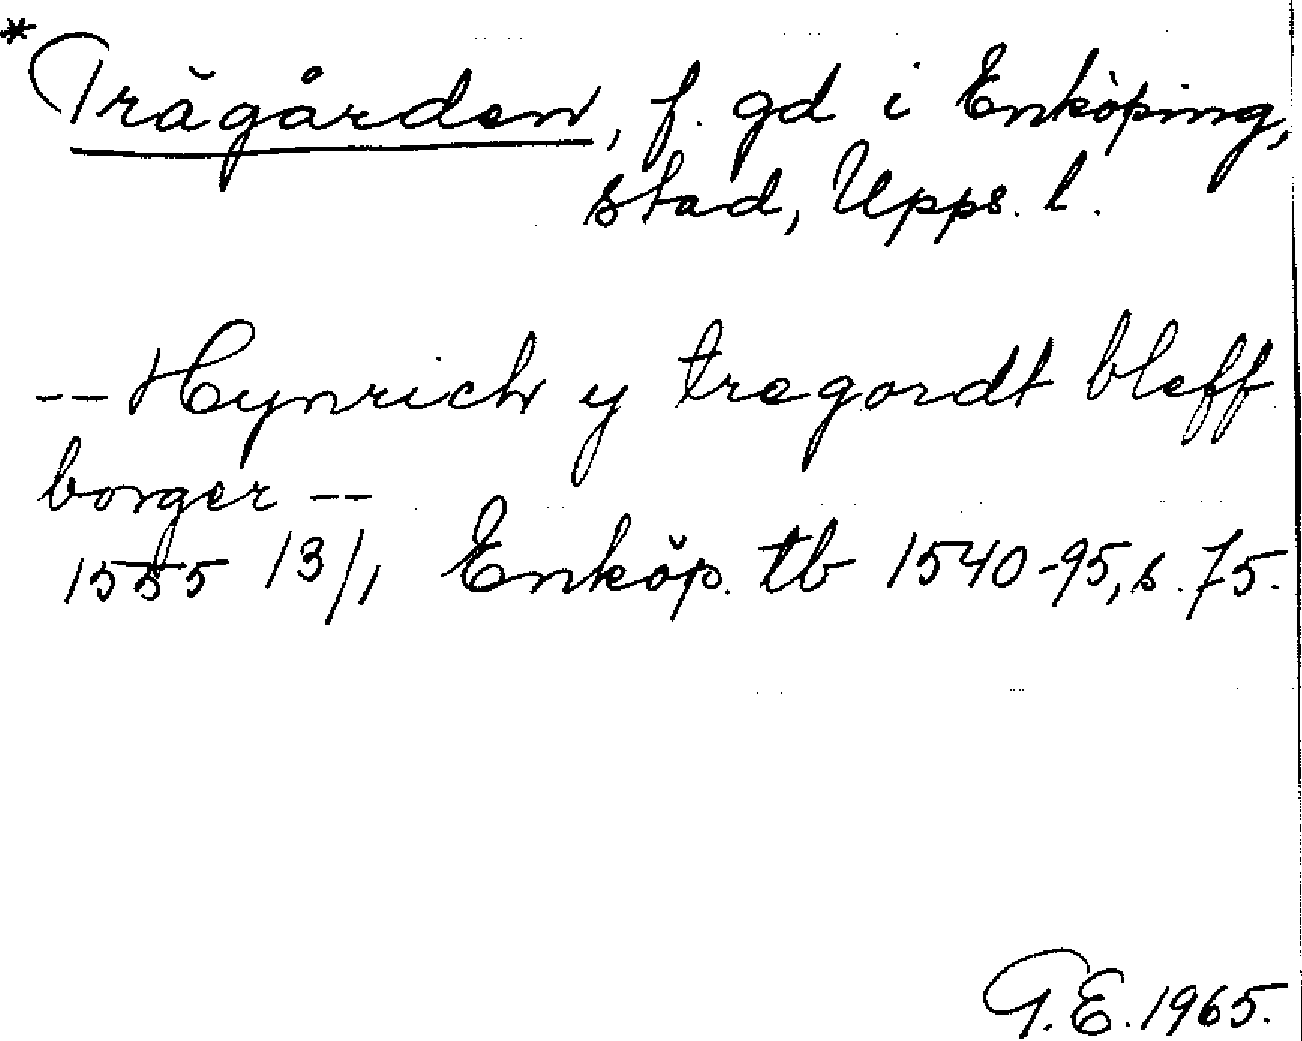 *Trägården, f. gd i Enköping,
stad, Upps. l.
-- Hynrich y tregordt bleff
borger --
1555 13/1 Enköp. tb 1540-95, s. 75.
T.E. 1965.